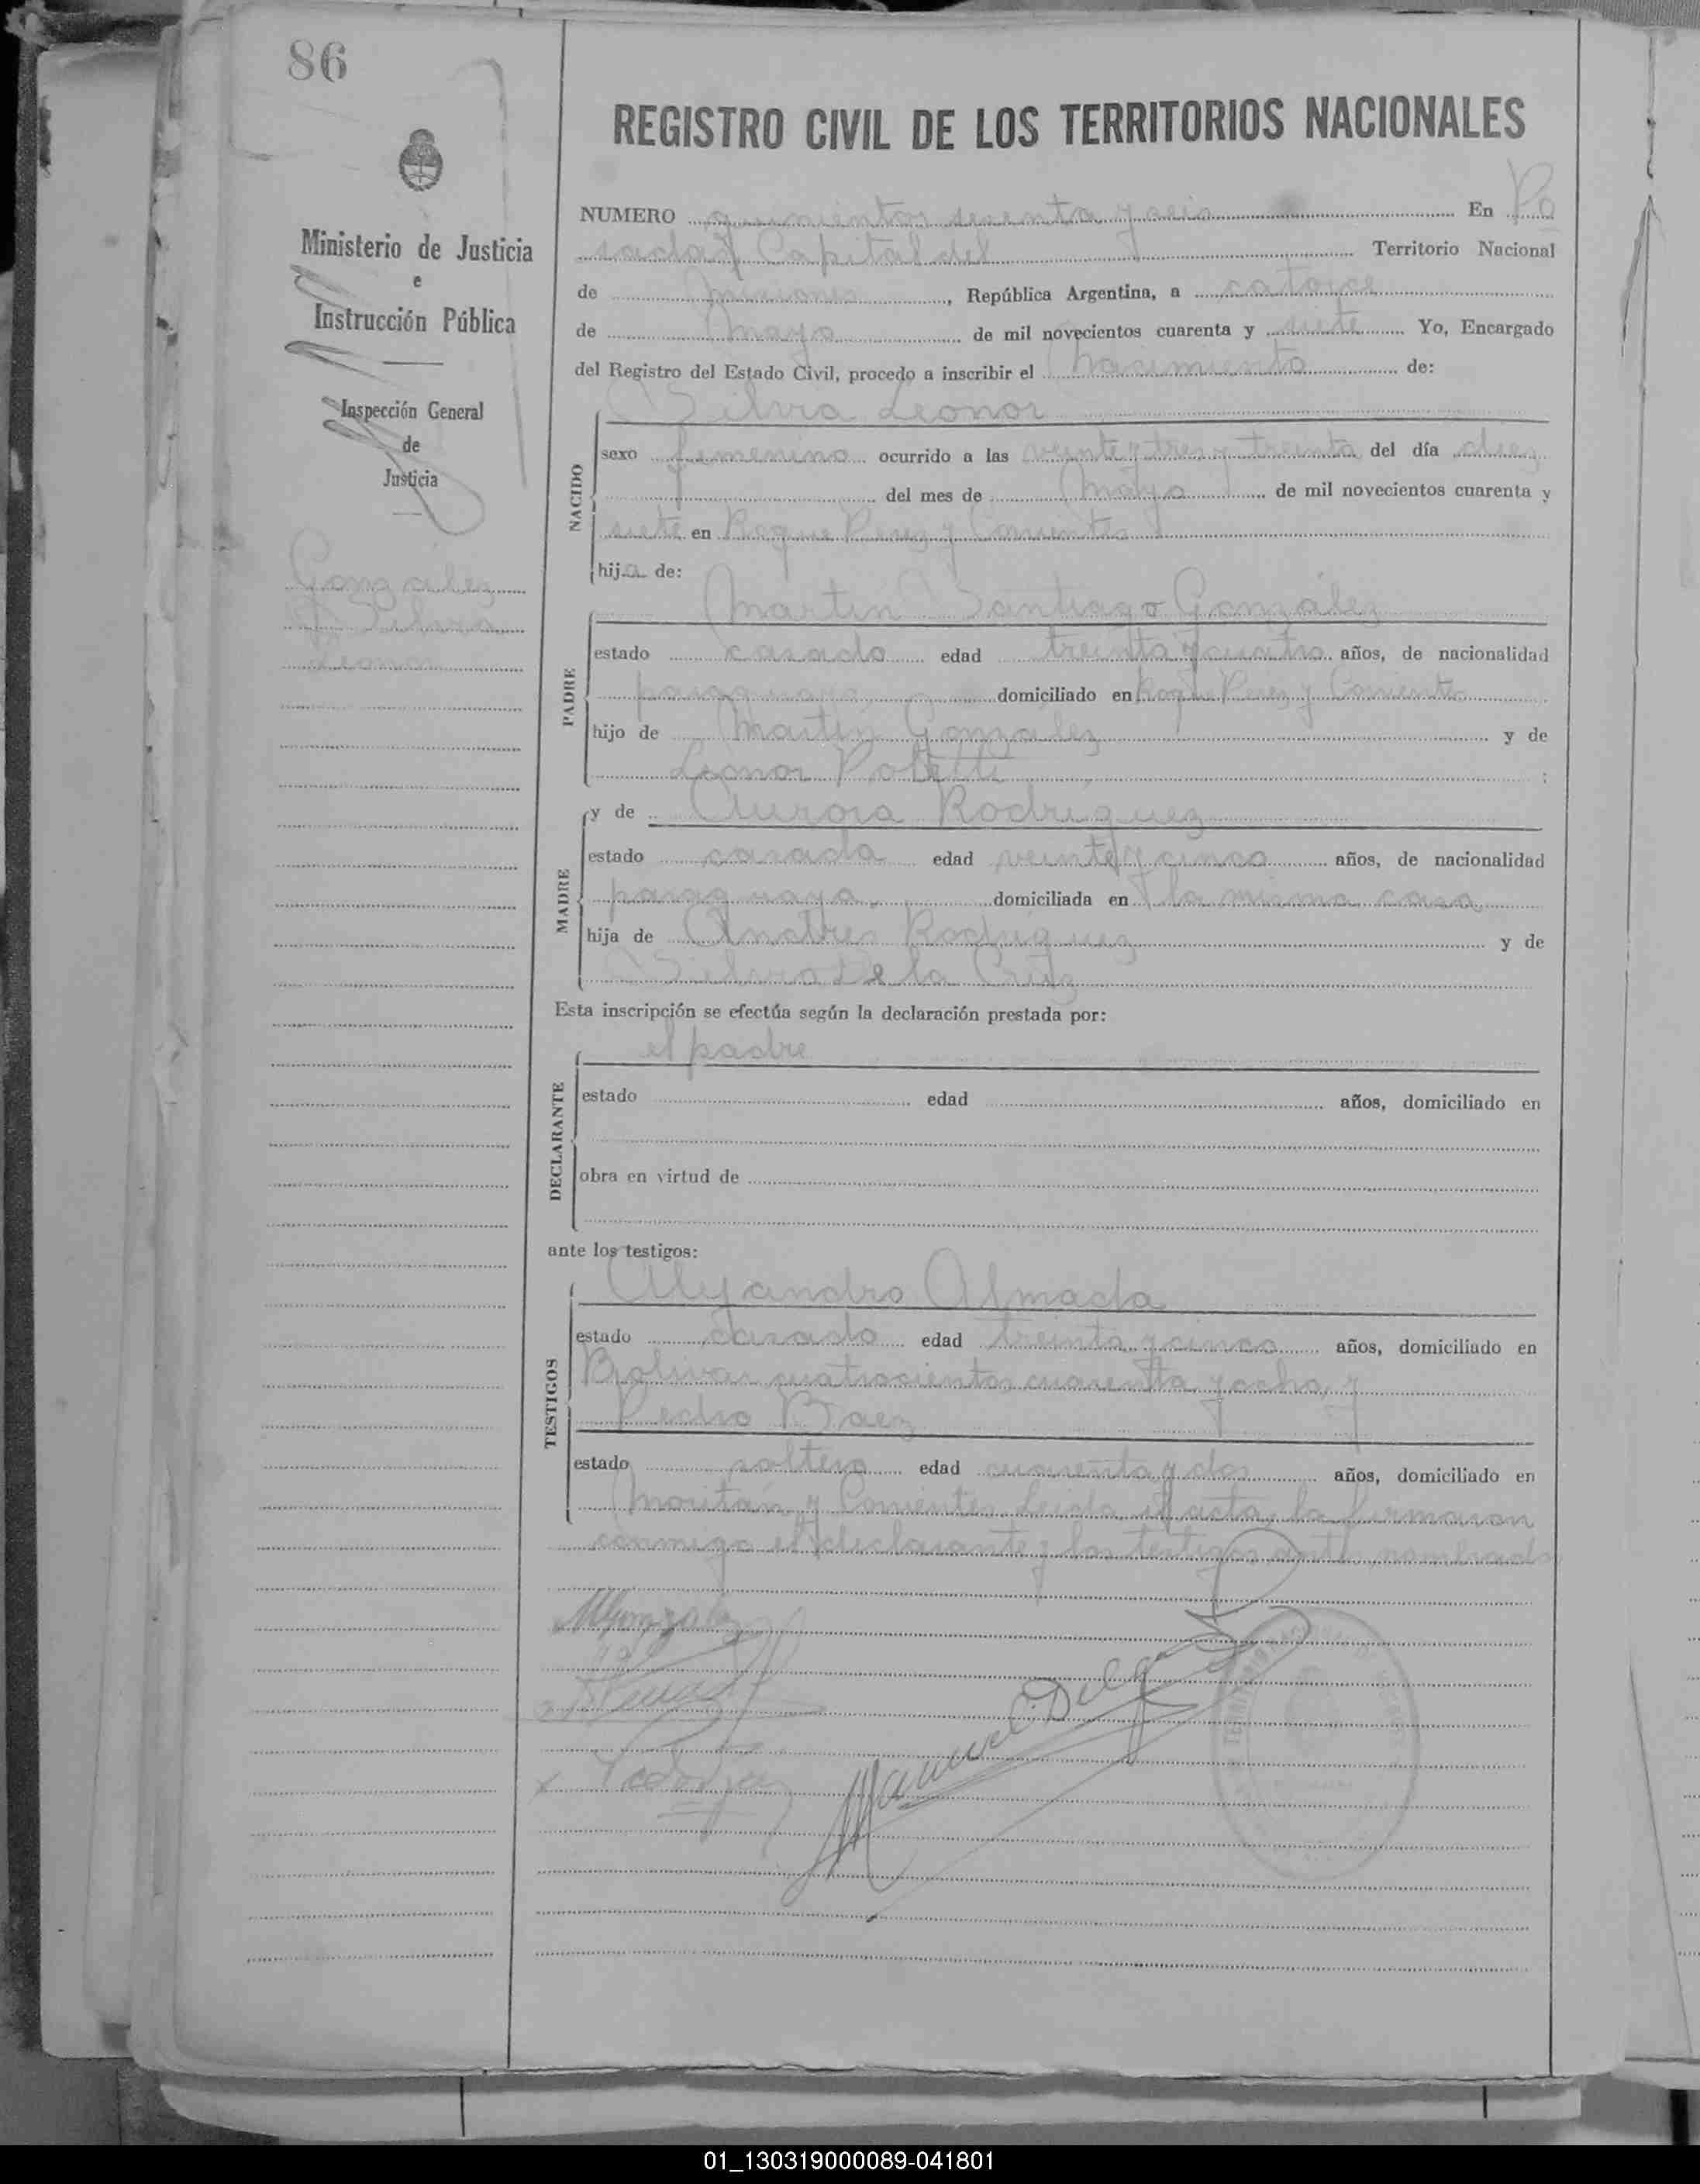 86
REGISTRO CIVIL DE LOS TERRITORIOS NACIONALES
Ministerio de Justicia
e
Instrucción Pública
Inspección General
de
Justicia
González
Silvia
Leonor
NUMERO quinientos sesenta y seis En Po
sadas Capital del Territorio Nacional
de Misiones, República Argentina, a catorce
de Mayo de mil novecientos cuarenta y siete Yo, Encargado
del Registro del Estado Civil, procedo a inscribir el nacimiento de:
Silvia Leonor
NACIDO
sexo femenino ocurrido a las veinte y tres y treinta del día diez
del mes de Mayo de mil novecientos cuarenta y
siete en Roque Perez y Corrientes
hija de:
Martín Santiago González
PADRE
estado casado edad treinta y cuatro años, de nacionalidad
paraguaya domiciliado en Roque Perez y Corrientes
hijo de Martín González y de
Leonor ;
y de Aurora Rodríguez
MADRE
estado casada edad veinte y cinco años, de nacionalidad
paraguaya, domiciliada en la misma casa
hija de Andrés Rodríguez y de
Silvia De la Cruz
Esta inscripción se efectúa según la declaración prestada por:
el padre
DECLARANTE
estado edad años, domiciliado en
obra en virtud de
ante los testigos:
Alejandro Almada
TESTIGOS
estado casado edad treinta y cinco años, domiciliado en
Bolivar cuatrocientos cuarenta y ocho, y
Pedro Baez
estado soltero edad cuarenta y dos años, domiciliado en
y Corrientes. Leida el acta, la firmaron
conmigo el declarante y los testigos antes nombrados
MGonzalez
Manuel
01_130319000089-041801